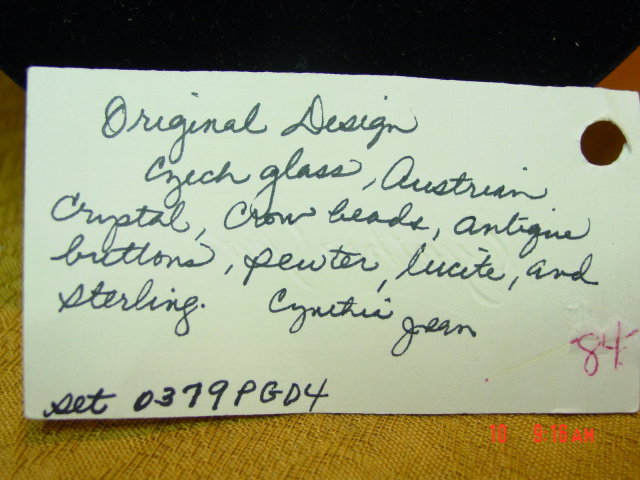 Original Design
Czech glass, Austrian
Crystal, Crow beads, antique
buttons, pewter, lucite, and
sterling. Cynthia Jean
84
set 0379PGD4
10 9:18AM